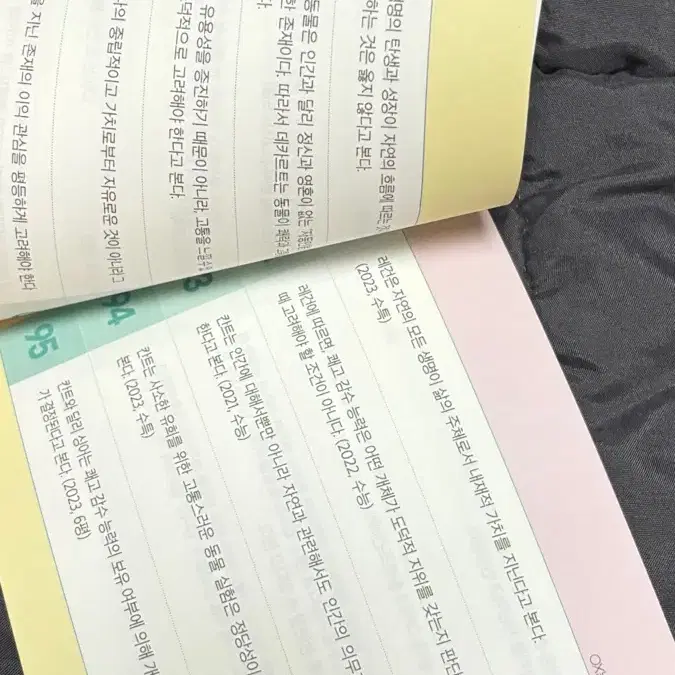 명의 탄생과 성장이 자연의 흐름에 따르는
하는 것은 옳지 않다고 본다.
동물은 인간과 달리 정신과 영혼이 없는
한 존재이다. 따라서 데카르트는 동물이 쾌락과
다.
유용성을 증진하기 때문이 아니라, 고통을 느낄 수
덕적으로 고려해야 한다고 본다.
나의 중립적이고 가치로부터 자유로운 것이 아니라고
을 지닌 존재의 이익 관심을 평등하게 고려해야 한다
레건은 자연의 모든 생명이 삶의 주체로서 내재적 가치를 지닌다고 본다.
(2023, 수특)
레건에 따르면, 쾌고 감수 능력은 어떤 개체가 도덕적 지위를 갖는지 판단
때 고려해야 할 조건이 아니다. (2022, 수능)
3
칸트는 인간에 대해서뿐만 아니라 자연과 관련해서도 인간의 의무
한다고 본다. (2021, 수능)
94
칸트는 사소한 유희를 위한 고통스러운 동물 실험은 정당성이
본다. (2023, 수특)
95
칸트와 달리 싱어는 쾌고 감수 능력의 보유 여부에 의해 개
가 결정된다고 본다. (2023, 6평)